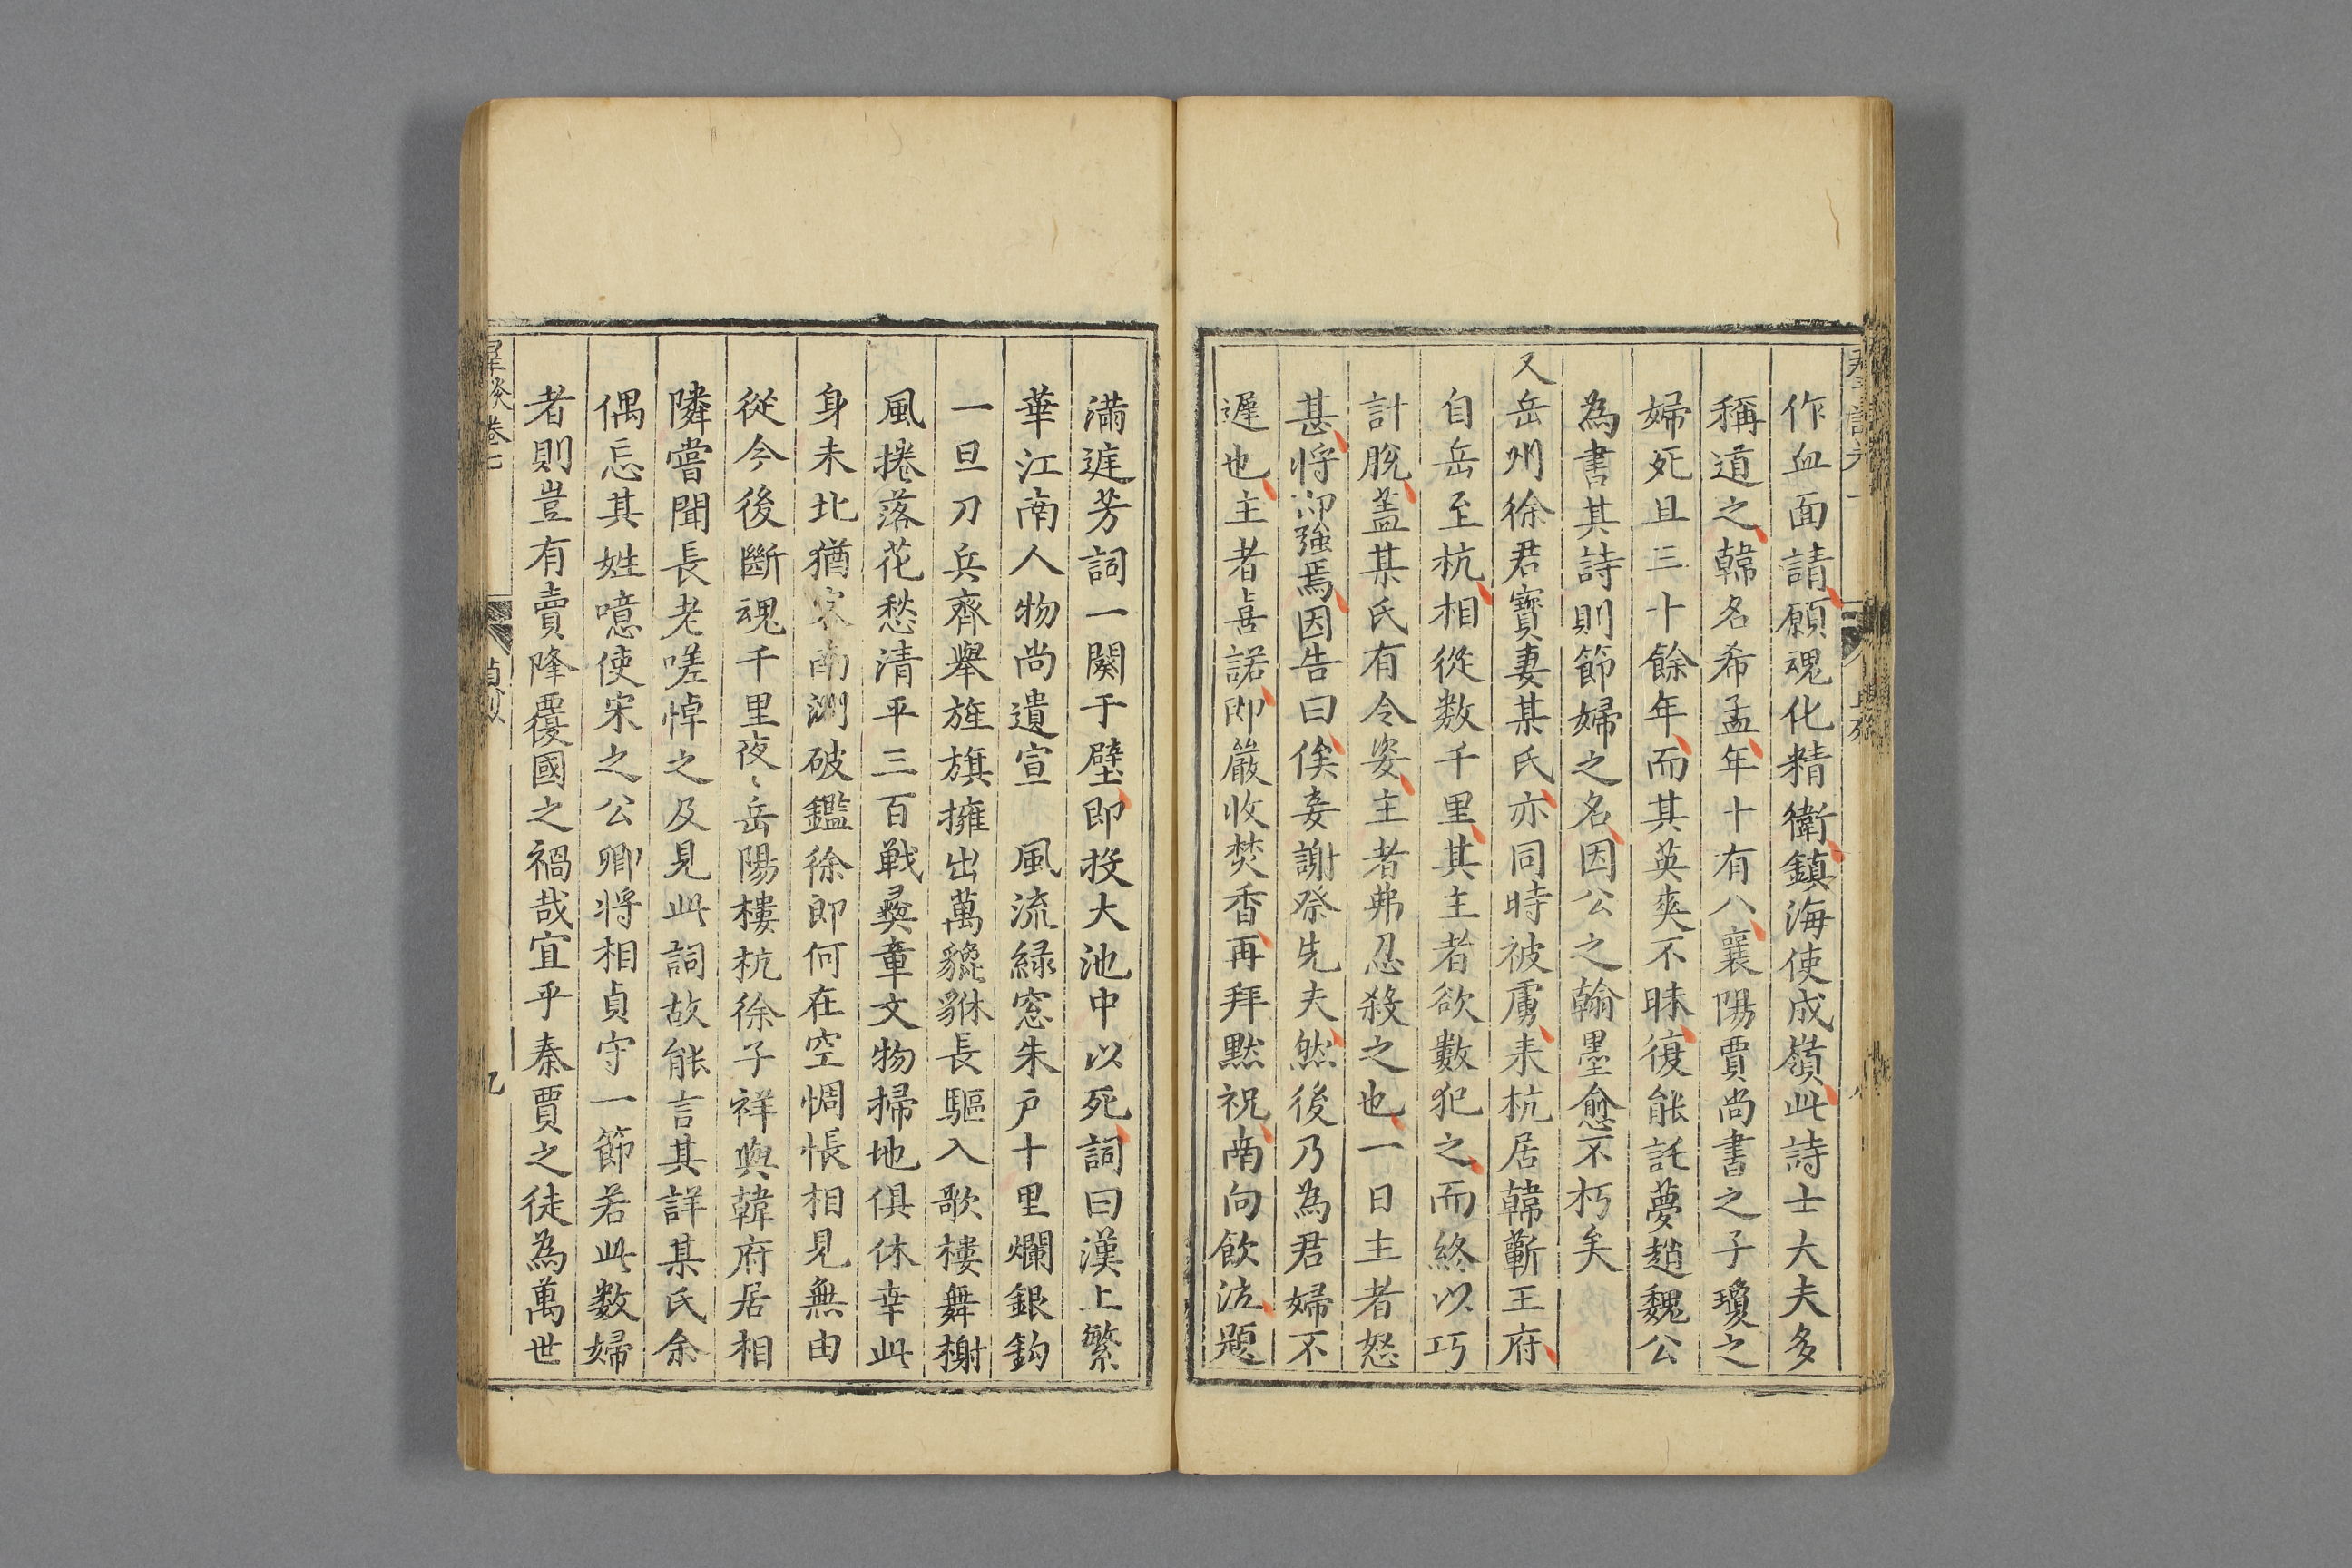 作血面請願魂化精衛鎮海使成嶺此詩士大夫多
稱道之韓名希孟年十有八襄陽賈尚書之子瓊之
婦死且三十餘年而其英爽不昧復能託夢趙魏公
為書其詩則節婦之名因公之翰墨愈不朽矣
又岳州徐君寶妻某氏亦同時被虜来杭居韓蘄王府
自岳至杭相從数千里其主者欲數犯之而終以巧
計脫盖某氏有令姿主者弗忍殺之也一日主者怒
甚将即強焉因告曰俟妾謝祭先夫然後乃為君婦不
遲也主者喜諾即嚴收焚香再拜默祝南向飲泣題
滿庭芳詞一闋于壁即投大池中以死詞曰漢上繁
華江南人物尚遺宣 風流綠窓朱戶十里爛銀鈎
一旦刀兵齊舉旌旗擁出萬貔貅長驅入歌樓舞榭
風捲落花愁清平三百戰彛章文物掃地俱休幸此
身未北猶客南渊破鑑徐郎何在空惆悵相見無由
從今後斷魂千里夜〻岳陽樓杭徐子祥與韓府居相
隣嘗聞長老嗟悼之及見此詞故能言其詳某氏余
偶忘其姓噫使宋之公卿将相貞守一節若此数婦
者則豈有賣降覆國之禍哉宜乎秦賈之徒為萬世
羣談卷七
九